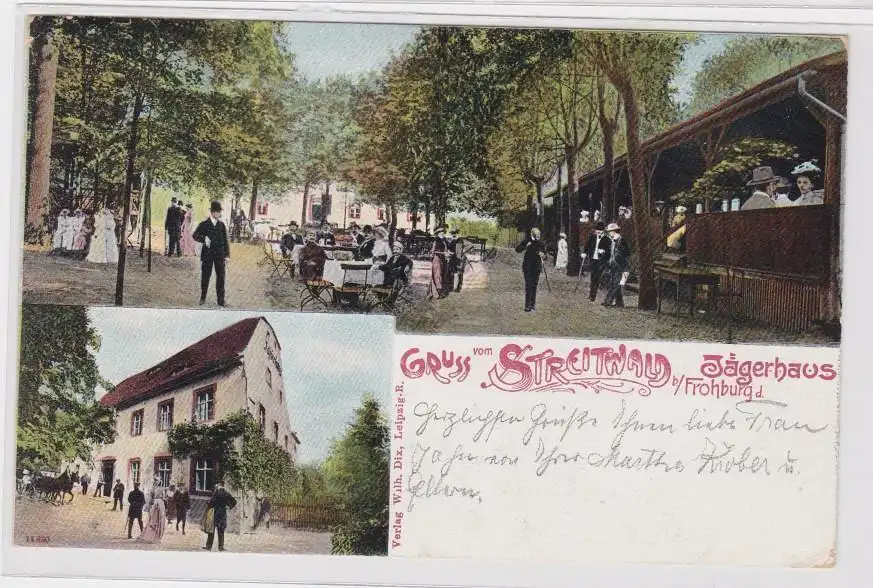 Gruss vom Streitwald b/ Frohburg
Jägerhaus
Herzlichsten Grüße Ihnen liebe Frau
Jahn von Ihrer Martha Kober u.
Eltern.
Verlag Wilh. Dix, Leipzig-R.